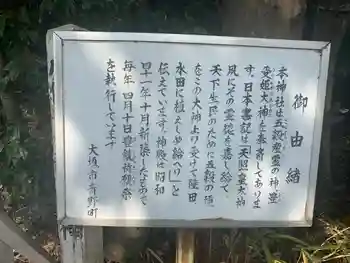 御由緒
本神社は五穀豊霊の神豊
受姫大神を奉斎してありま
す。日本書記は天照皇大神
夙にその霊徳を嘉し給て
天下生民のために五穀の種
をこの大神より受けて陸田
水田に植えしめ給へり」と
伝えています。神殿は昭和
四十一年十月新築したもので
毎年四月十日豊穀祈願祭
を執行しています
大垣市
野町